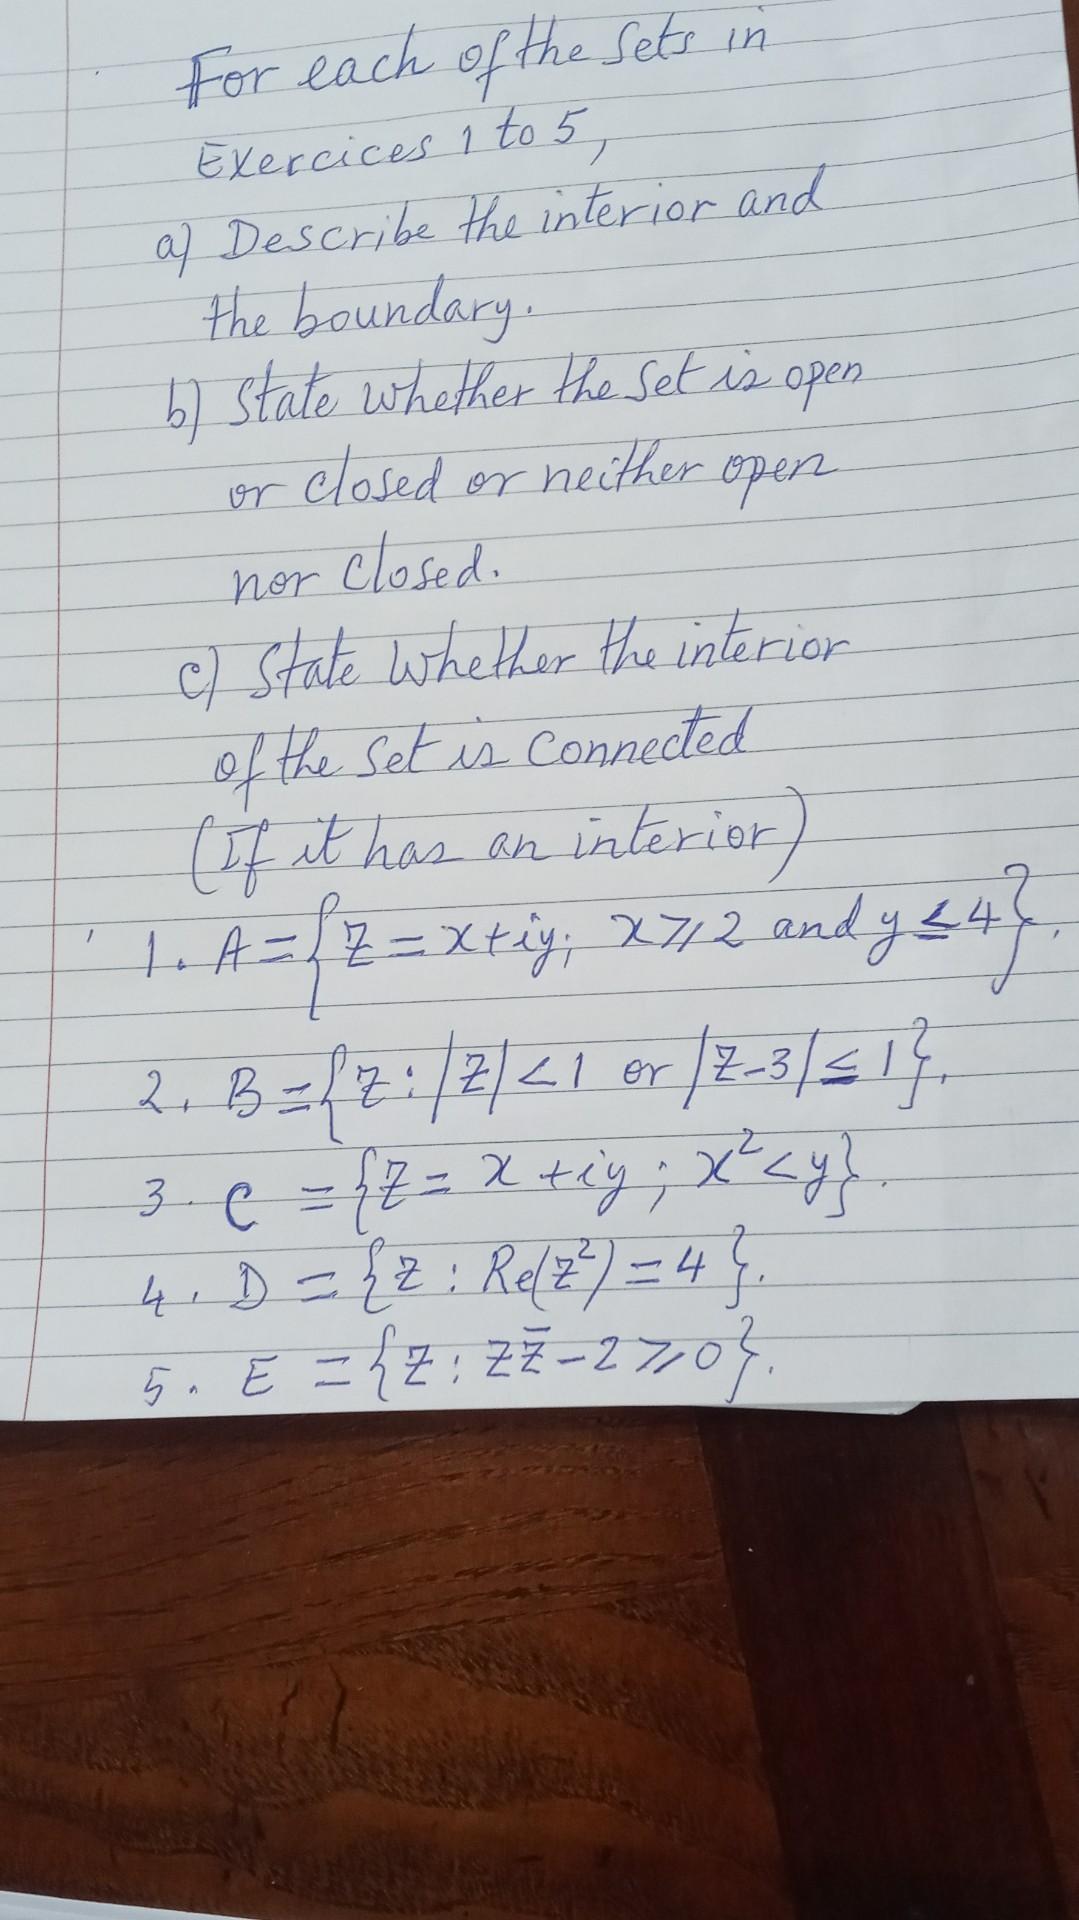 For each of the sets in
Exercices 1 to 5,
a) Describe the interior and
the boundary.
b) State whether the set is open
or closed or neither open
nor closed.
c) State whether the interior
of the set is connected
(If it has an interior)
1. A = {z = x+iy; x ⩾ 2 and y ≤ 4}.
2. B = {z : |z| < 1 or |z-3| ≤ 1}.
3. C = {z = x + iy ; x² < y}.
4. D = {z : Re(z²) = 4}.
5. E = {z : zz̄ - 2 ⩾ 0}.